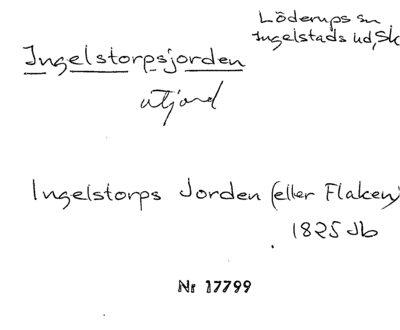 Löderups sn
Ingelstads hd, Sk
Ingelstorpsjorden
utjord
Ingelstorps Jorden (eller Flaken)
1825 Jb
Nr 17799